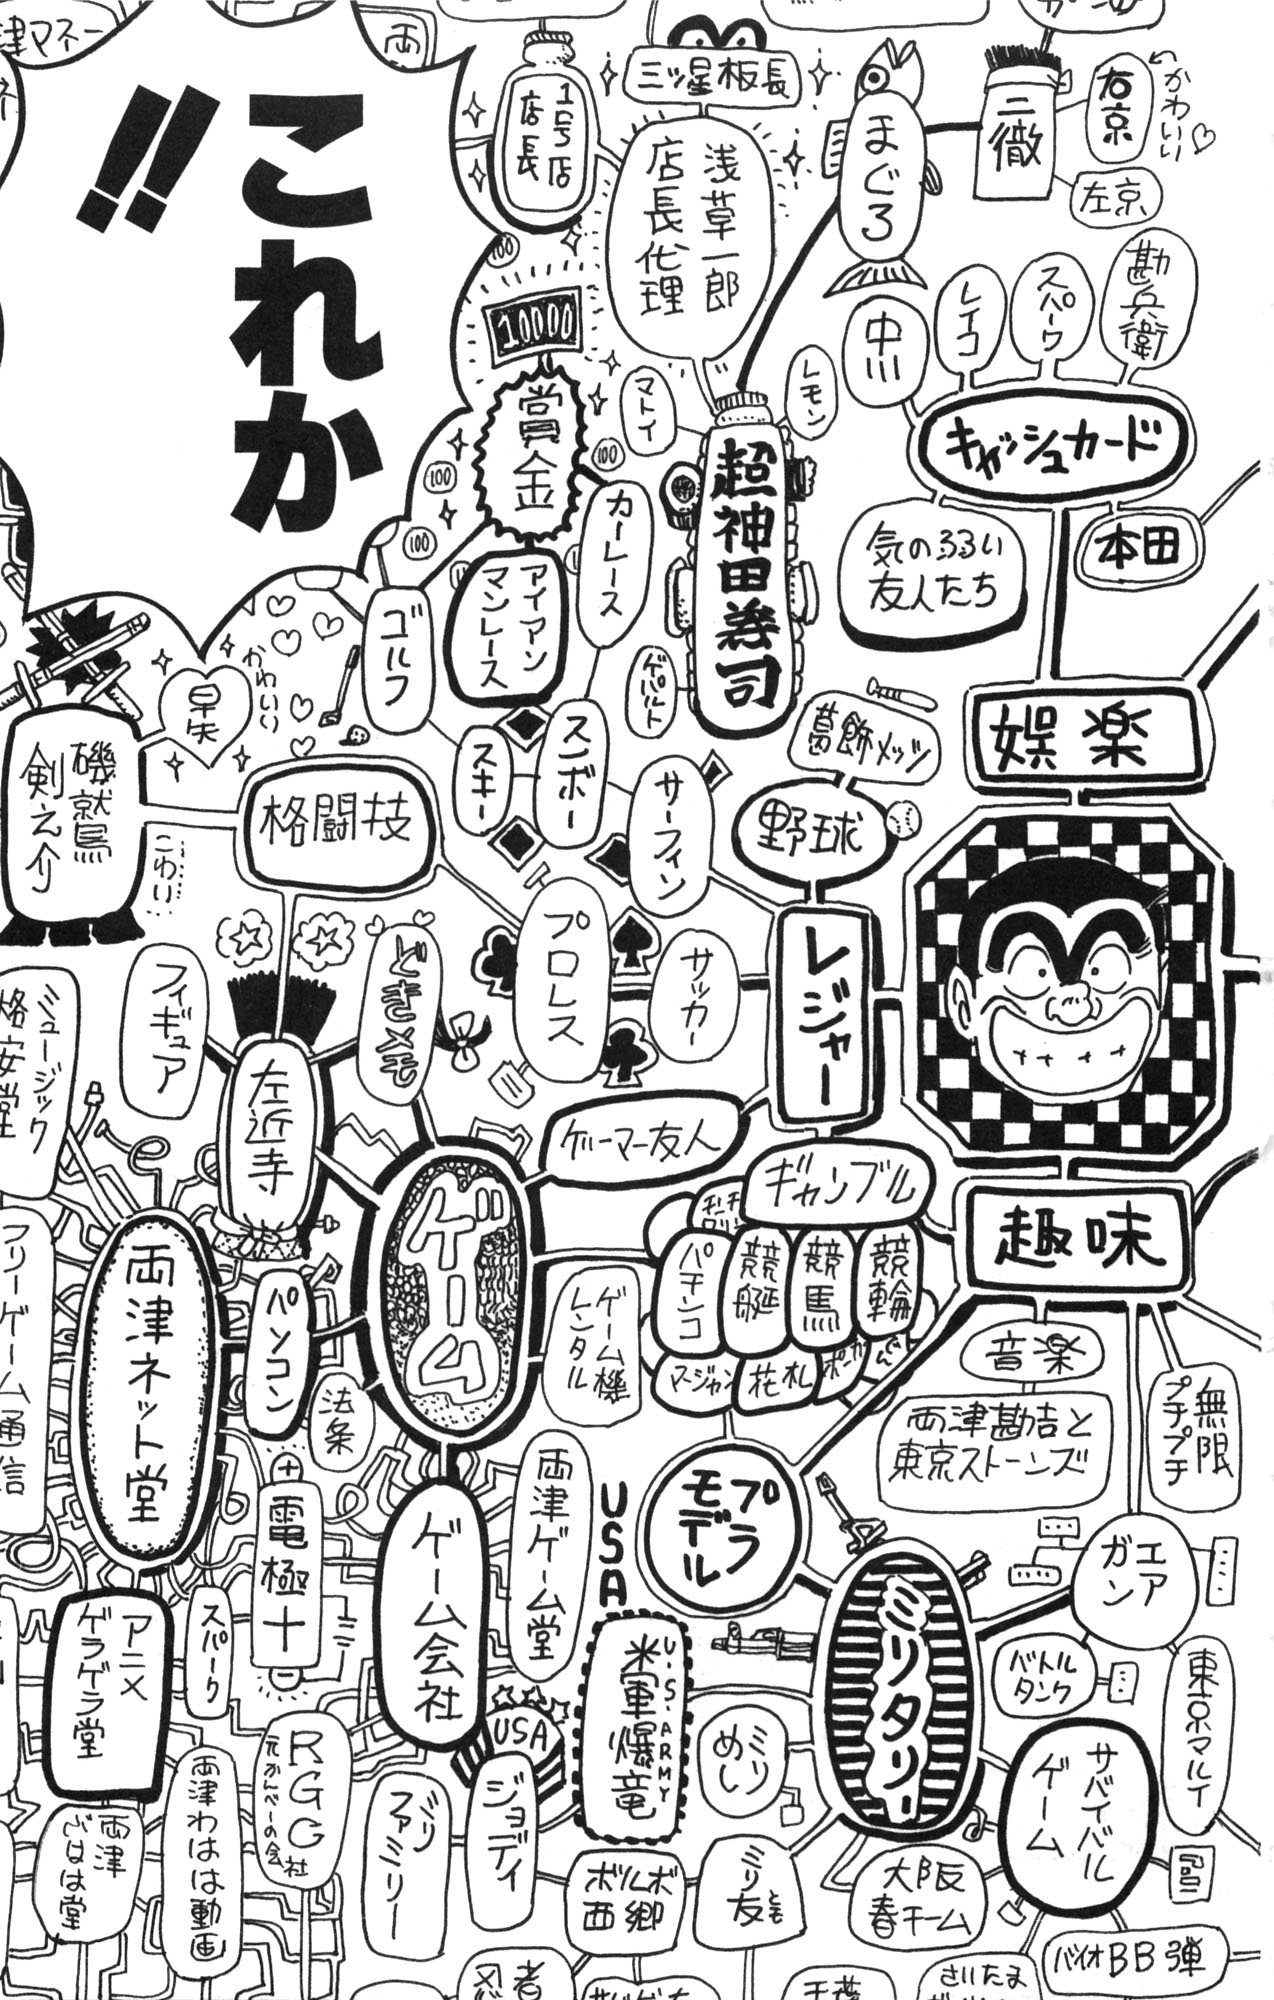 これか
!!
津マネー
両
1号店
店長
三ツ星板長
浅草一郎
店長代理
まぐろ
二徹
右京
かわいい♡
左京
10000
100
賞金
100
100
100
カーレース
アイアン
マンレース
ゴルフ
マトイ
レモン
超神田寿司
ゲパルト
中川
レイコ
スパーク
勘兵衛
キャッシュカード
気のるるい
友人たち
本田
娯楽
葛飾メッツ
野球
レジャー
サーフィン
スンボー
スキー
サッカー
プロレス
格闘技
早矢
かわいい
磯鷲
剣之介
こわい
左近寺
フィギュア
どきメモ
ミュージック
格安堂
ゲーム
ゲーマー友人
ギャンブル
パチンコ
競艇
競馬
競輪
マージャン
花札
ポーカー
ゲーム機
レンタル
趣味
音楽
両津勘吉と
東京ストーンズ
無限
プチプチ
エア
ガン
プラ
モデル
ミリタリー
バトル
タンク
東京マルイ
サバイバル
ゲーム
大阪
春チーム
バイオBB弾
さいたま
千葉
ミリ
めし
ミリ
友
とも
USA
米軍爆竜
U.S.ARMY
ボルボ
西郷
両津ゲーム堂
ゲーム会社
USA
ジョディ
パソコン
法条
電極+
両津ネット堂
フリーゲーム通信
アニメ
ゲラゲラ堂
スパーク
RGG
元かんべーの会社
両津わはは動画
両津
がはは堂
忍者